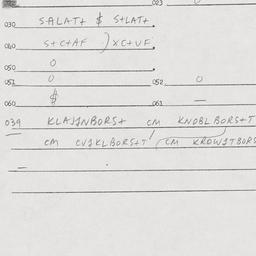 023
030 SALAT+ $ S+LAT+.
040 S+C+AF ) X C+UF.
050 0
051 0 052 0
060 $ 061 —
039 KLAJ1NBORS+ CM KNOBLBORS+T
CM CVJKLBORS+T / CM KROW1TBORS